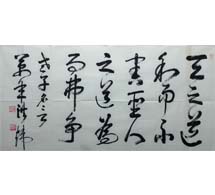 天之道
利而不
害聖人
之道為
而弗爭
老子名言